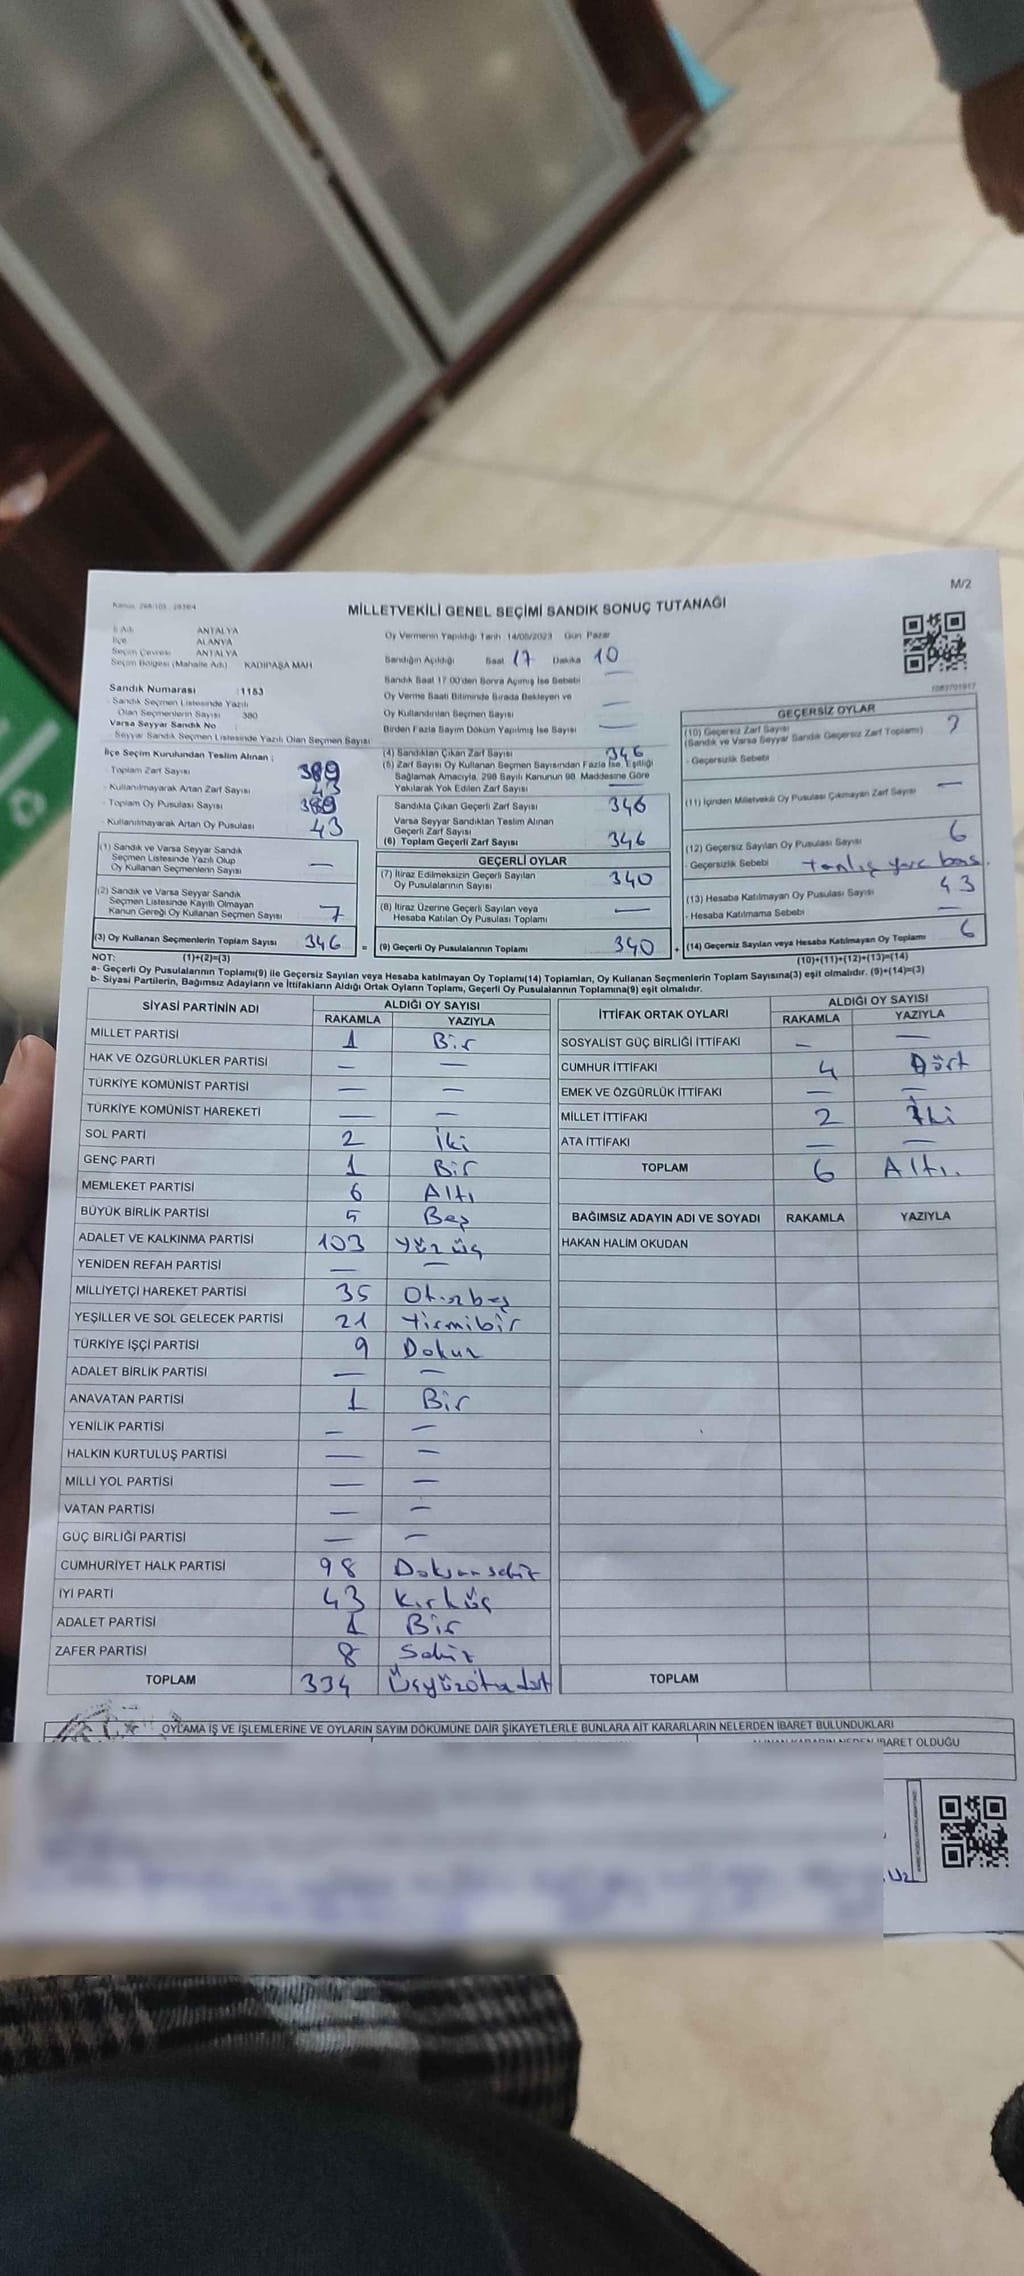 M/2
MİLLETVEKİLİ GENEL SEÇİMİ SANDIK SONUÇ TUTANAĞI
İl Adı ANTALYA
İlçe ALANYA
Seçim Çevresi ANTALYA
Seçim Bölgesi (Mahalle Adı) KADIPAŞA MAH
Oy Vermenin Yapıldığı Tarih 14/05/2023 Gün Pazar
Sandığın Açıldığı Saat 17 Dakika 10
Sandık Saat 17.00'den Sonra Açılmış İse Sebebi
Oy Verme Saati Bitiminde Sırada Bekleyen ve
Oy Kullandırılan Seçmen Sayısı —
Birden Fazla Sayım Döküm Yapılmış İse Sayısı —
Sandık Numarası :1153
Sandık Seçmen Listesinde Yazılı
Olan Seçmenlerin Sayısı 380
Varsa Seyyar Sandık No
Seyyar Sandık Seçmen Listesinde Yazılı Olan Seçmen Sayısı
İlçe Seçim Kurulundan Teslim Alınan ;
Toplam Zarf Sayısı 389
Kullanılmayarak Artan Zarf Sayısı 43
Toplam Oy Pusulası Sayısı 389
Kullanılmayarak Artan Oy Pusulası 43
(1) Sandık ve Varsa Seyyar Sandık
Seçmen Listesinde Yazılı Olup
Oy Kullanan Seçmenlerin Sayısı —
(2) Sandık ve Varsa Seyyar Sandık
Seçmen Listesinde Kayıtlı Olmayan
Kanun Gereği Oy Kullanan Seçmen Sayısı 7
(3) Oy Kullanan Seçmenlerin Toplam Sayısı 346 =
(4) Sandıktan Çıkan Zarf Sayısı 346
(5) Zarf Sayısı Oy Kullanan Seçmen Sayısından Fazla İse, Eşitliği
Sağlamak Amacıyla, 298 Sayılı Kanunun 98. Maddesine Göre
Yakılarak Yok Edilen Zarf Sayısı —
Sandıkta Çıkan Geçerli Zarf Sayısı 346
Varsa Seyyar Sandıktan Teslim Alınan
Geçerli Zarf Sayısı
(6) Toplam Geçerli Zarf Sayısı 346
GEÇERLİ OYLAR
(7) İtiraz Edilmeksizin Geçerli Sayılan
Oy Pusulalarının Sayısı 340
(8) İtiraz Üzerine Geçerli Sayılan veya
Hesaba Katılan Oy Pusulası Toplamı —
(9) Geçerli Oy Pusulalarının Toplamı 340 +
GEÇERSİZ OYLAR
(10) Geçersiz Zarf Sayısı
(Sandık ve Varsa Seyyar Sandık Geçersiz Zarf Toplamı)
- Geçersizlik Sebebi
(11) İçinden Milletvekili Oy Pusulası Çıkmayan Zarf Sayısı —
(12) Geçersiz Sayılan Oy Pusulası Sayısı 6
- Geçersizlik Sebebi
(13) Hesaba Katılmayan Oy Pusulası Sayısı 43
- Hesaba Katılmama Sebebi —
(14) Geçersiz Sayılan veya Hesaba Katılmayan Oy Toplamı 6
NOT: (1)+(2)=(3) (10)+(11)+(12)+(13)=(14)
a- Geçerli Oy Pusulalarının Toplamı(9) ile Geçersiz Sayılan veya Hesaba katılmayan Oy Toplamı(14) Toplamları, Oy Kullanan Seçmenlerin Toplam Sayısına(3) eşit olmalıdır. (9)+(14)=(3)
b- Siyasi Partilerin, Bağımsız Adayların ve İttifakların Aldığı Ortak Oyların Toplamı, Geçerli Oy Pusulalarının Toplamına(9) eşit olmalıdır.
SİYASİ PARTİNİN ADI ALDIĞI OY SAYISI
RAKAMLA YAZIYLA
MİLLET PARTİSİ 1 Bir
HAK VE ÖZGÜRLÜKLER PARTİSİ — —
TÜRKİYE KOMÜNİST PARTİSİ — —
TÜRKİYE KOMÜNİST HAREKETİ — —
SOL PARTİ 2 İki
GENÇ PARTİ 1 Bir
MEMLEKET PARTİSİ 6 Altı
BÜYÜK BİRLİK PARTİSİ 5 Beş
ADALET VE KALKINMA PARTİSİ 103 Yüz üç
YENİDEN REFAH PARTİSİ — —
MİLLİYETÇİ HAREKET PARTİSİ 35 Otuzbeş
YEŞİLLER VE SOL GELECEK PARTİSİ 21 Yirmibir
TÜRKİYE İŞÇİ PARTİSİ 9 Dokuz
ADALET BİRLİK PARTİSİ — —
ANAVATAN PARTİSİ 1 Bir
YENİLİK PARTİSİ — —
HALKIN KURTULUŞ PARTİSİ — —
MİLLİ YOL PARTİSİ — —
VATAN PARTİSİ — —
GÜÇ BİRLİĞİ PARTİSİ — —
CUMHURİYET HALK PARTİSİ 98 Doksansekiz
İYİ PARTİ 43 Kırküç
ADALET PARTİSİ 1 Bir
ZAFER PARTİSİ 8 Sekiz
TOPLAM 334 Üçyüzotuzdört
İTTİFAK ORTAK OYLARI ALDIĞI OY SAYISI
RAKAMLA YAZIYLA
SOSYALİST GÜÇ BİRLİĞİ İTTİFAKI — —
CUMHUR İTTİFAKI 4 Dört
EMEK VE ÖZGÜRLÜK İTTİFAKI — —
MİLLET İTTİFAKI 2 İki
ATA İTTİFAKI — —
TOPLAM 6 Altı.
BAĞIMSIZ ADAYIN ADI VE SOYADI RAKAMLA YAZIYLA
HAKAN HALİM OKUDAN
TOPLAM
OYLAMA İŞ VE İŞLEMLERİNE VE OYLARIN SAYIM DÖKÜMÜNE DAİR ŞİKAYETLERLE BUNLARA AİT KARARLARIN NELERDEN İBARET BULUNDUKLARI
İBARET OLDUĞU